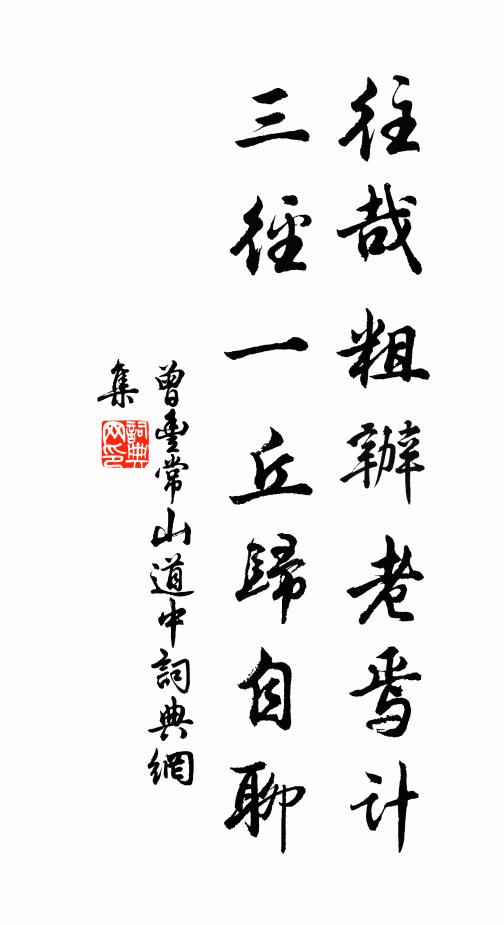 往哉粗辦老焉計
三徑一丘歸自聊
曾豐常山道中詞典網
集
詞典
网印